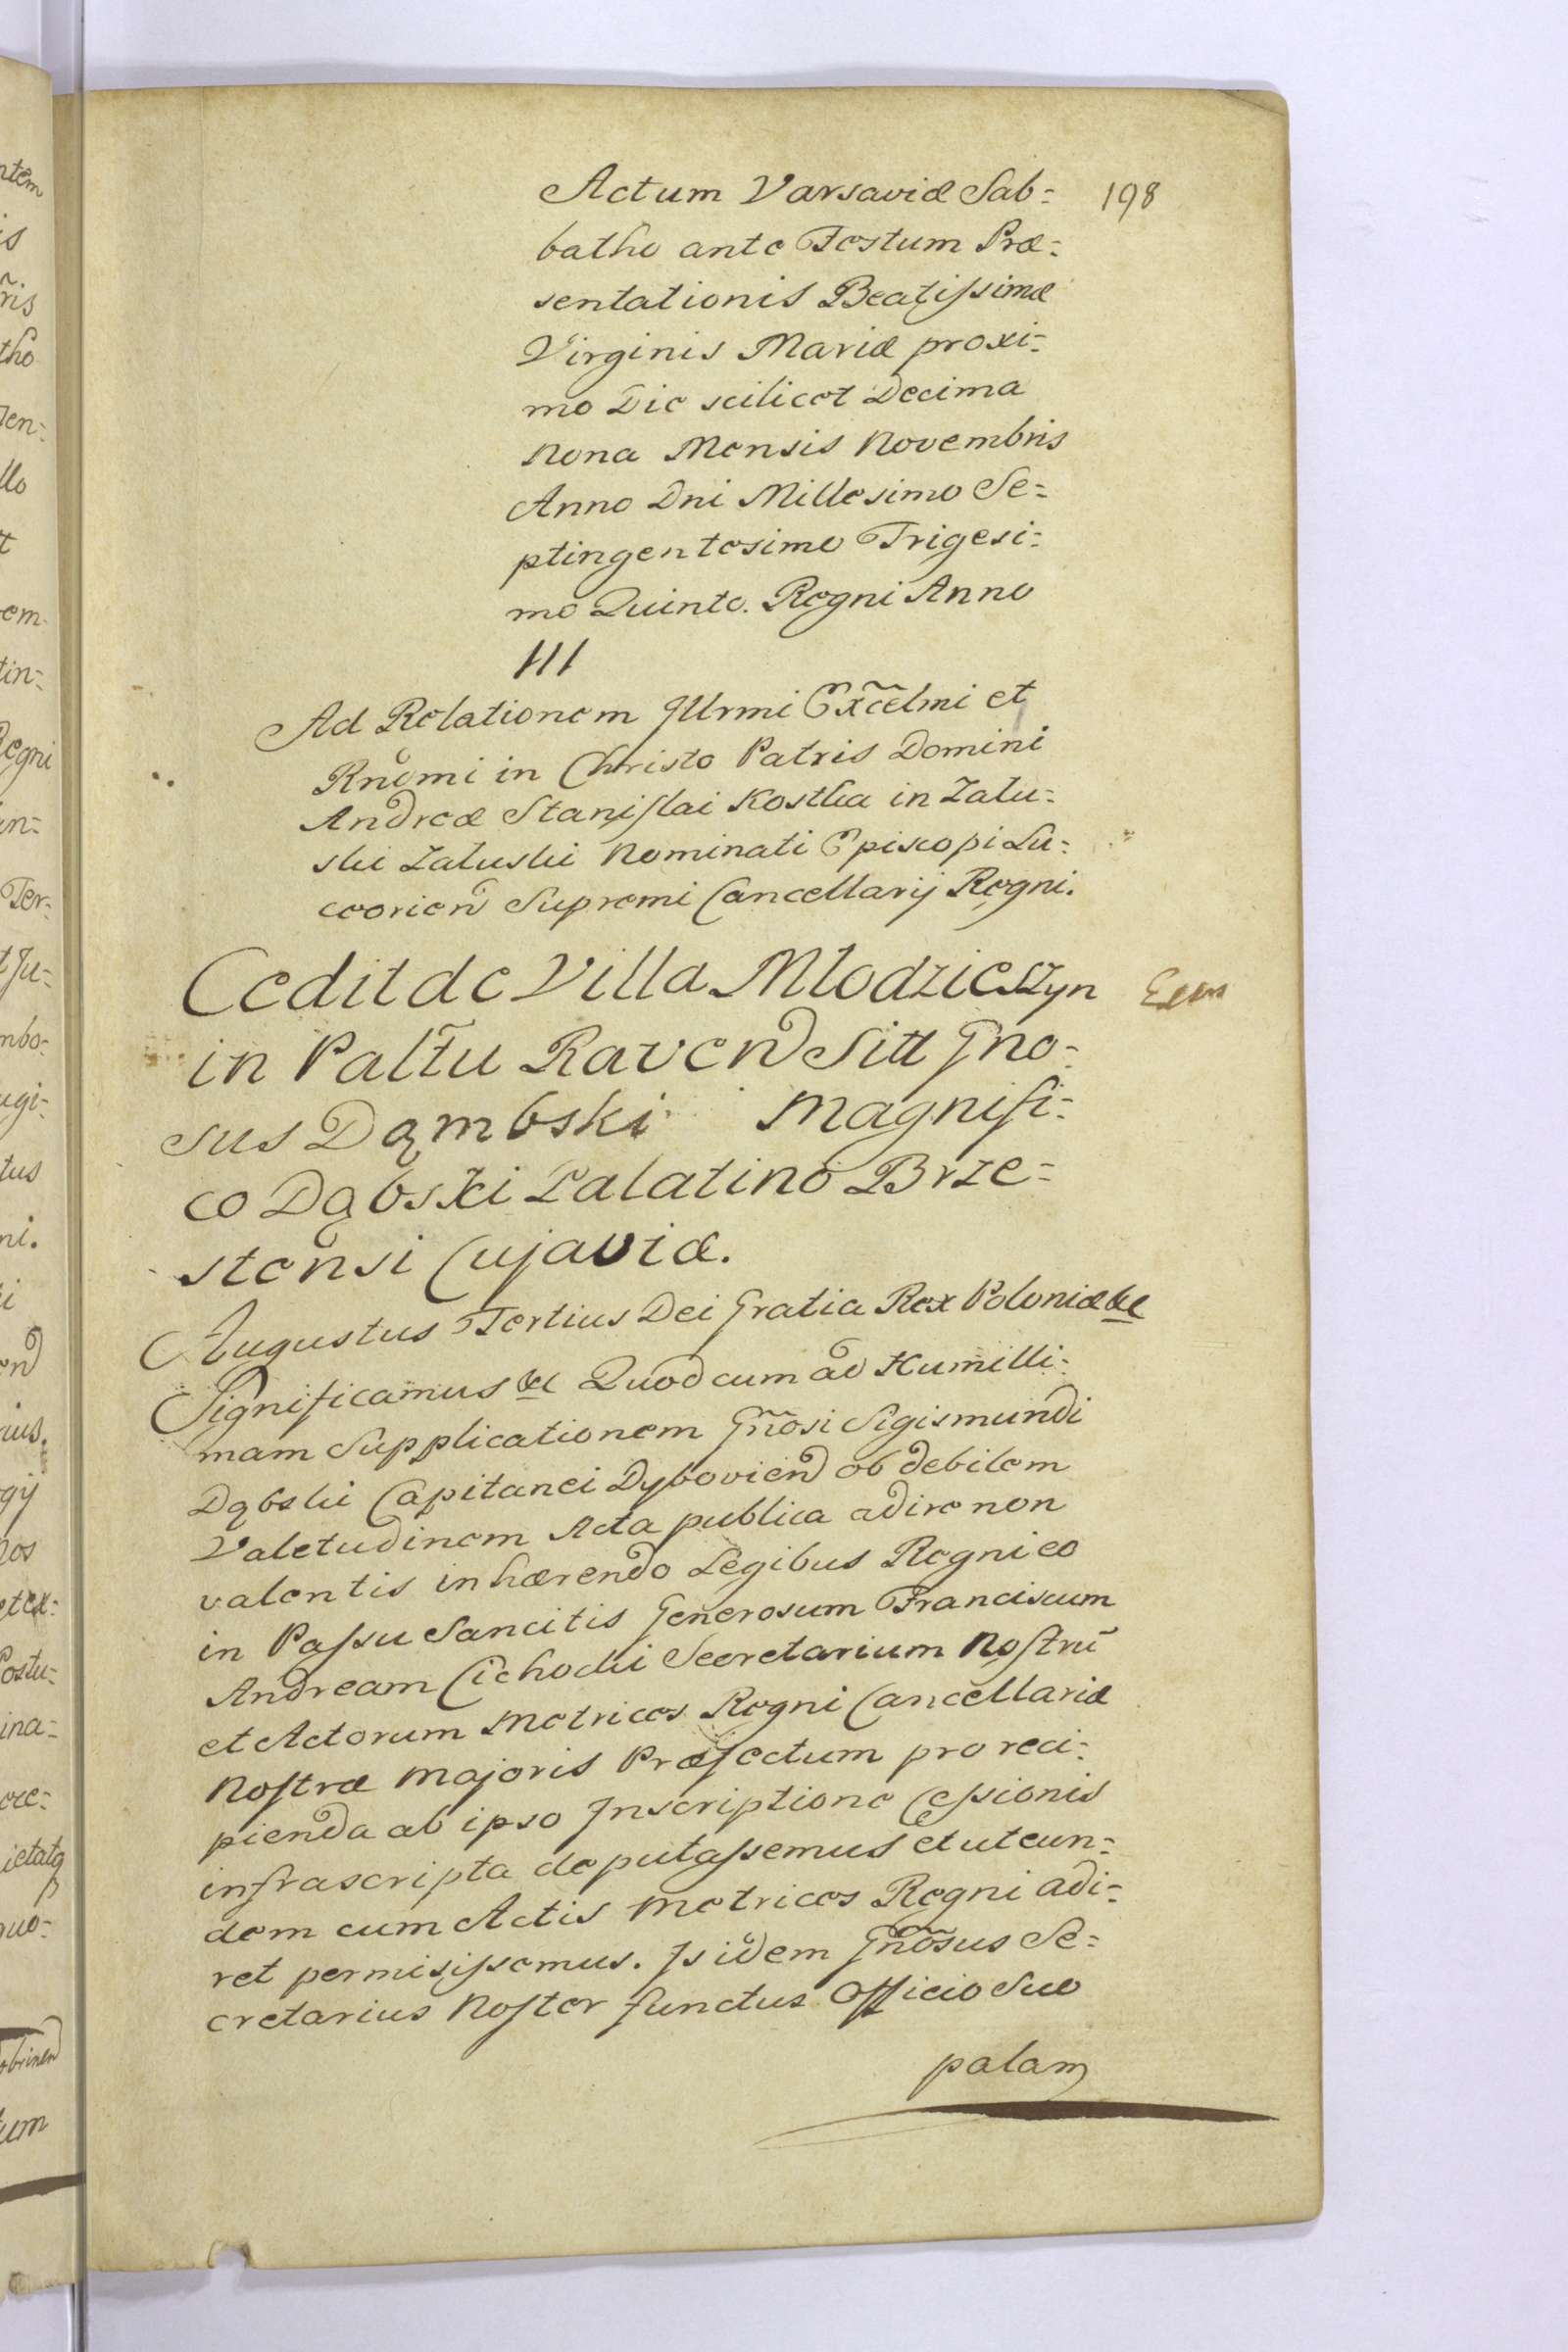 Actum Varsaviæ Sab=
198
batho ante Festum Præ=
sentationis Beatissimæ
Virginis Mariæ proxi=
mo Die scilicet Decima
Nona Mensis Novembris
Anno Dni Millesimo Se=
ptingentesimo Trigesi=
mo Quinto. Regni Anno
III
Ad Relationem Illrmi Excelmi et
Rndmi in Christo Patris Domini
Andreæ Stanislai Kostka in Zalu=
ski Zaluski Nominati Episcopi Lu=
coorien Supremi Cancellarij Regni.
Cedit de Villa Mlodzieszyn
in Palttu Raven Sitt Gno=
sus Dąmbski Magnifi=
co Dąbski Palatino Brze=
stensi Cujaviæ.
Augustus Tertius Dei Gratia Rex Poloniæ &c
Significamus &c Quod cum ad Humilli=
mam Supplicationem Gnosi Sigismundi
Dąbski Capitanei Dybovien ob debilem
Valetudinem Acta publica adire non
valentis inhærendo Legibus Regni eo
in Passu Sancitis Generosum Franciscum
Andream Cichocki Secretarium Nostrū
et Actorum Metrices Regni Cancellariæ
Nostræ Majoris Præfectum pro reci=
pienda ab ipso Inscriptione Cessionis
infrascripta deputassemus et ut eun=
dem cum Actis Metrices Regni adi=
ret permisissemus. Is idem Gnosus Se=
cretarius Noster functus Officio Suo
palam